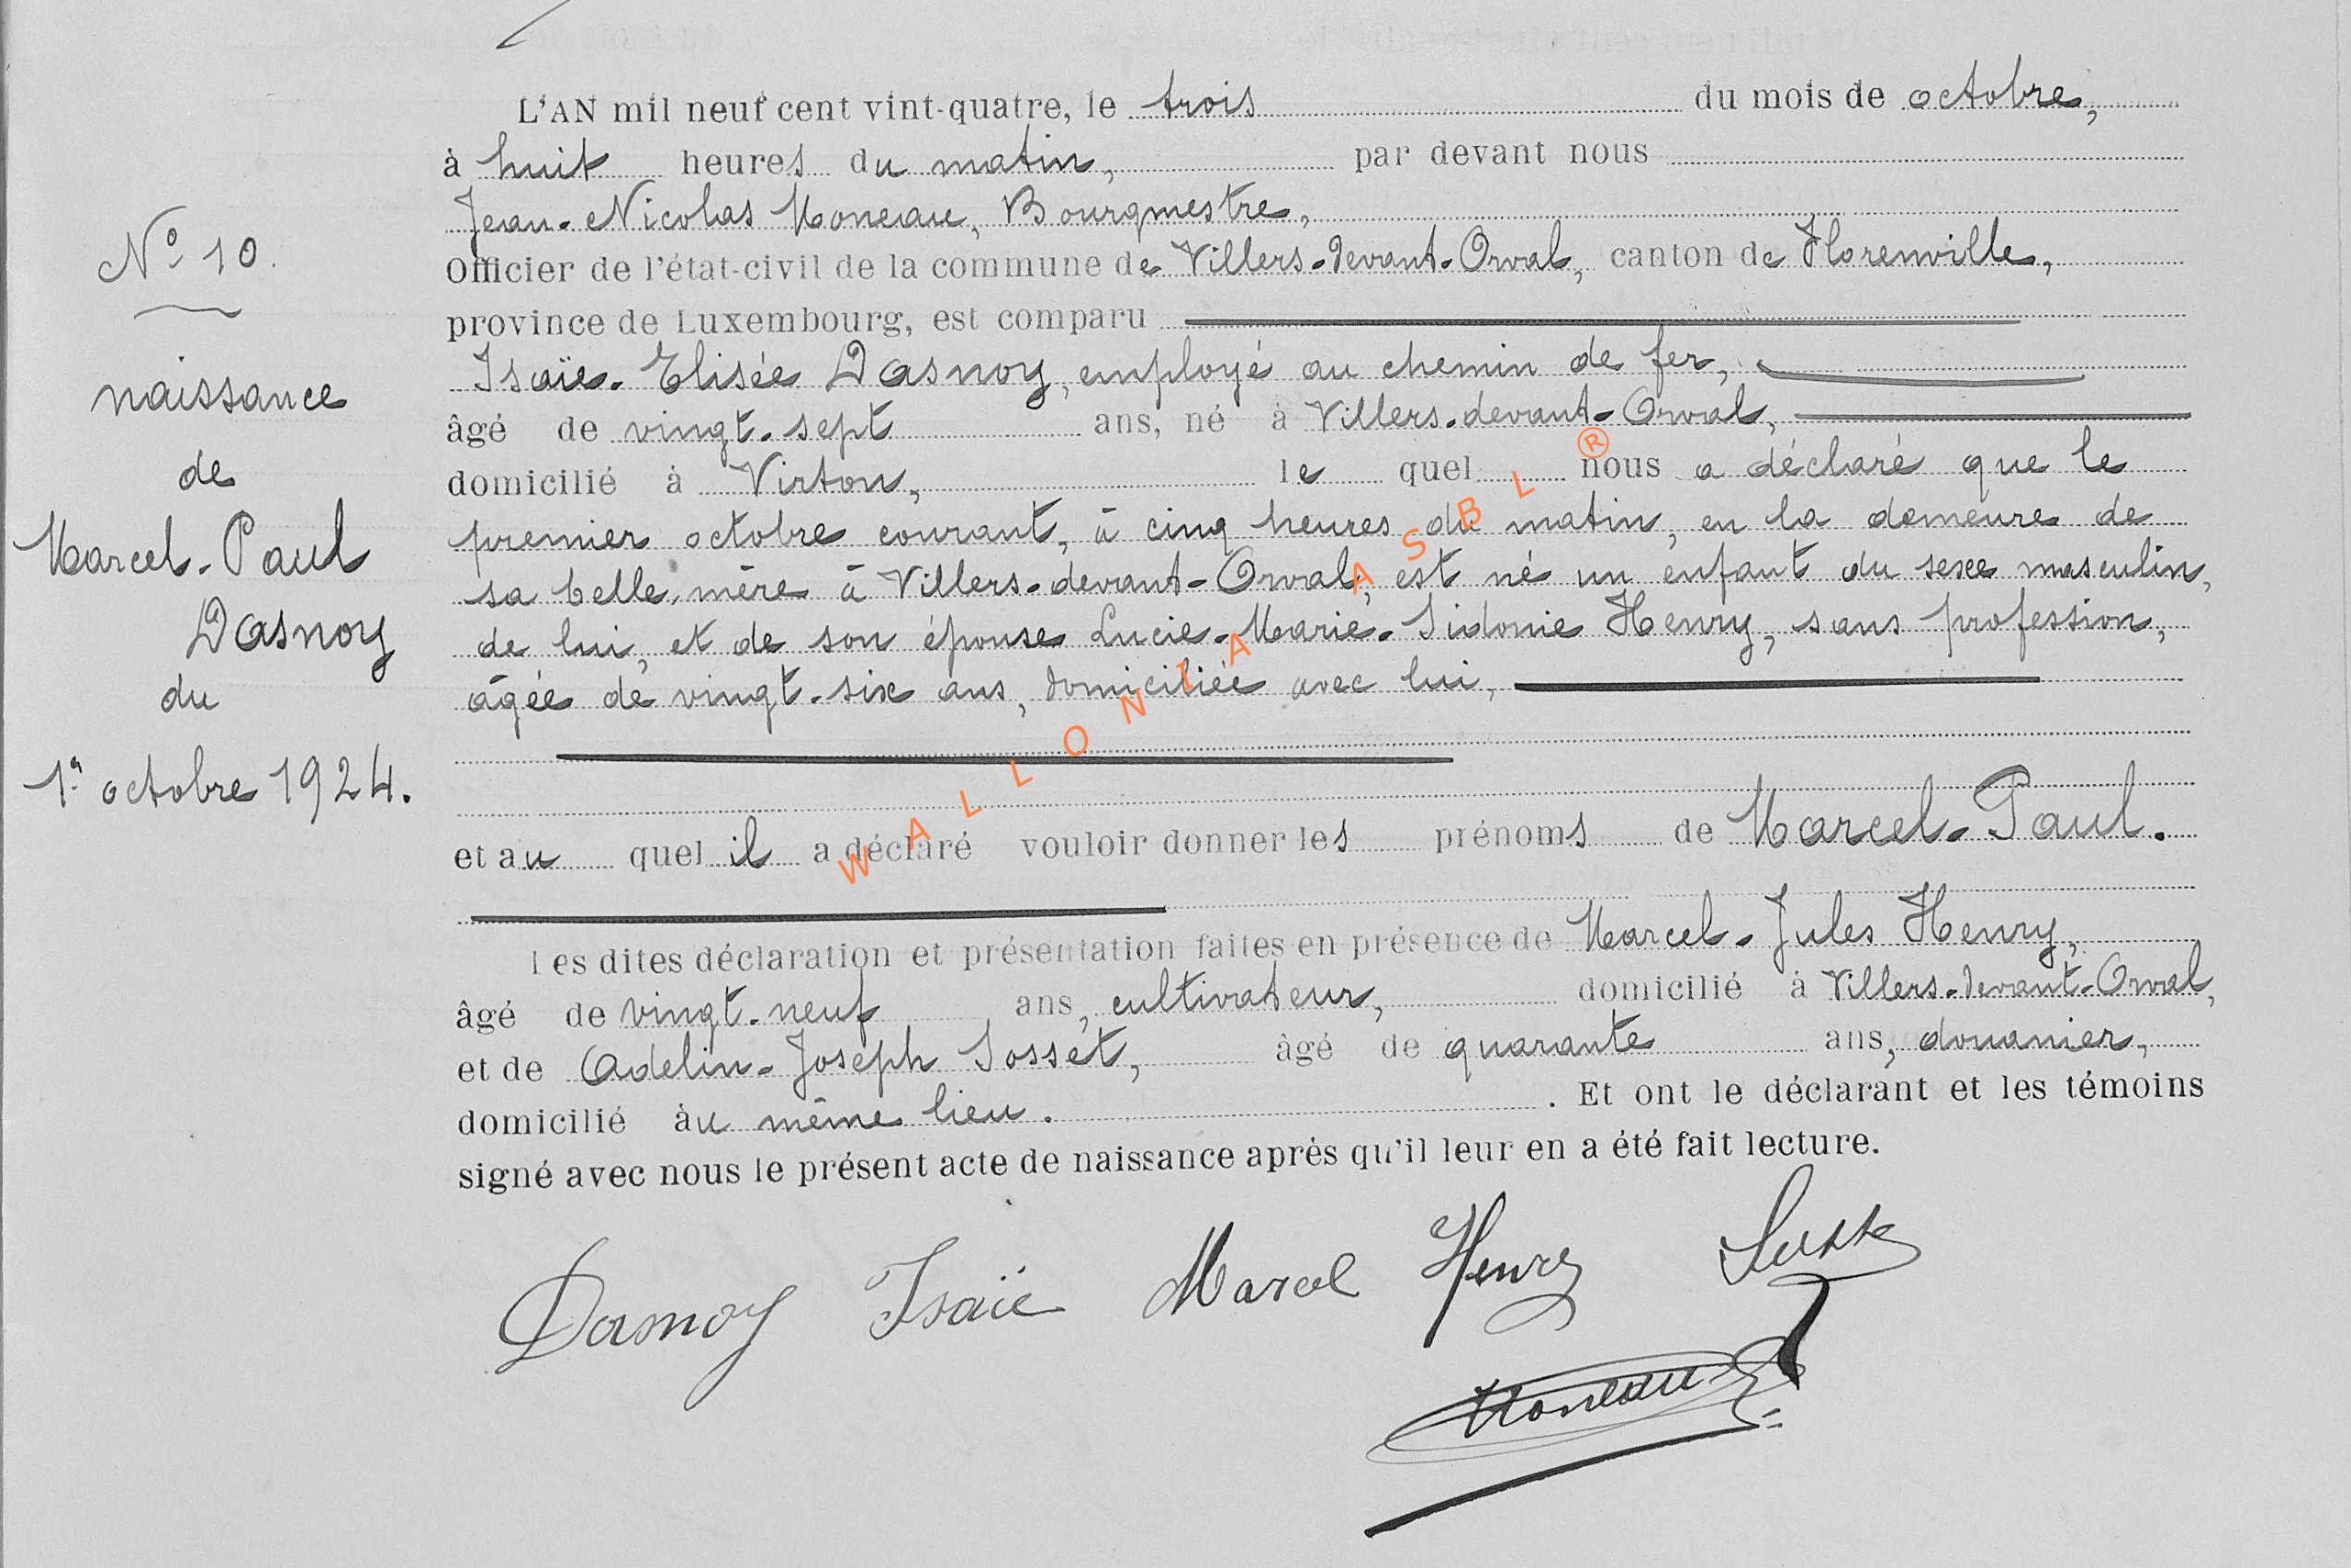 N° 10.
naissance
de
Marcel-Paul
Dasnoy
du
1er octobre 1924.
L'AN mil neuf cent vint-quatre, le trois du mois de octobre,
à huit heures du matin, par devant nous
Jean-Nicolas Moneau, Bourgmestre,
Officier de l'état-civil de la commune de Villers-devant-Orval, canton de Florenville,
province de Luxembourg, est comparu
Isaïe-Elisée Dasnoy, employé au chemin de fer,
âgé de vingt-sept ans, né à Villers-devant-Orval,
domicilié à Virton, le quel nous a déclaré que le
premier octobre courant, à cinq heures du matin, en la demeure de
sa belle-mère à Villers-devant-Orval, est né un enfant du sexe masculin,
de lui, et de son épouse Lucie-Marie-Sidonie Henry, sans profession,
âgée de vingt-six ans, domiciliée avec lui,
et au quel il a déclaré vouloir donner les prénoms de Marcel-Paul.
Les dites déclaration et présentation faites en présence de Marcel-Jules Henry,
âgé de vingt-neuf ans, cultivateur, domicilié à Villers-devant-Orval,
et de Adelin-Joseph Sosset, âgé de quarante ans, douanier,
domicilié àu même lieu. . Et ont le déclarant et les témoins
signé avec nous le présent acte de naissance après qu'il leur en a été fait lecture.
Dasnoy Isaïe Marcel Henry
Moneau
WALLONIA ASBL ®